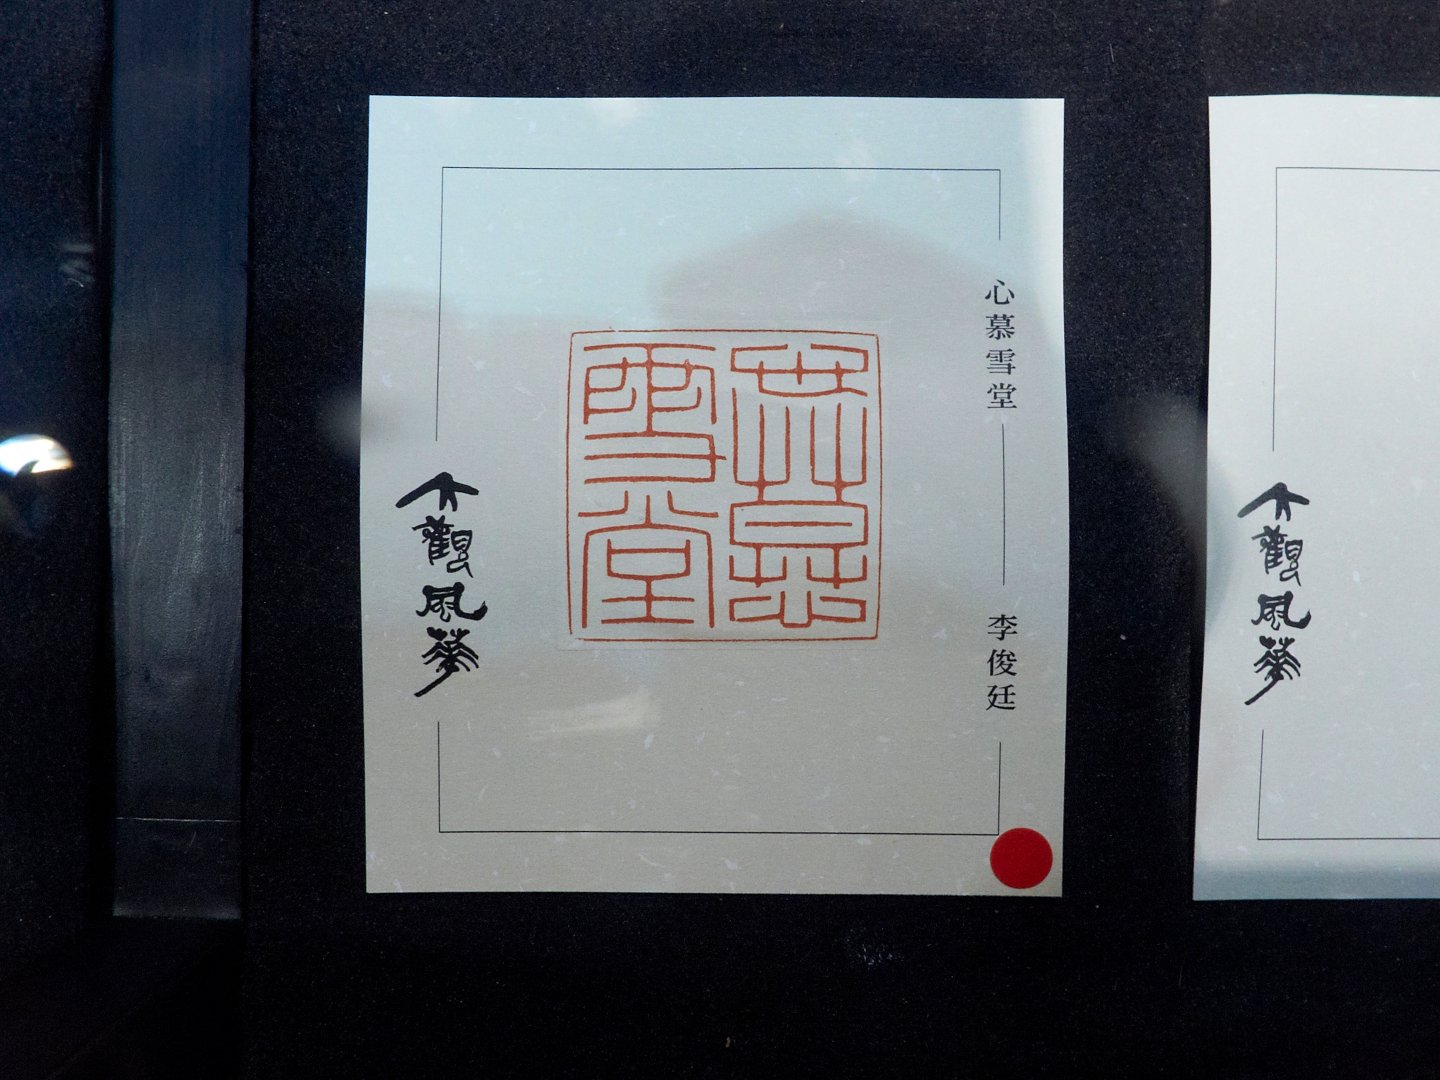 心慕雪堂
李俊廷
心慕
雪堂
大觀風華
大觀風華